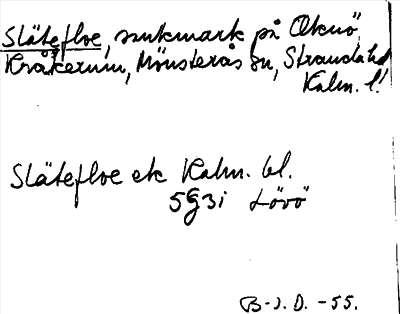 Slätefloe, sankmark på Oknö,
Kråkerum, Mönsterås sn, Stranda hd
Kalm. l.
Slätefloe ek Kalm. bl.
5G3i Lövö
B-J.D. -55.